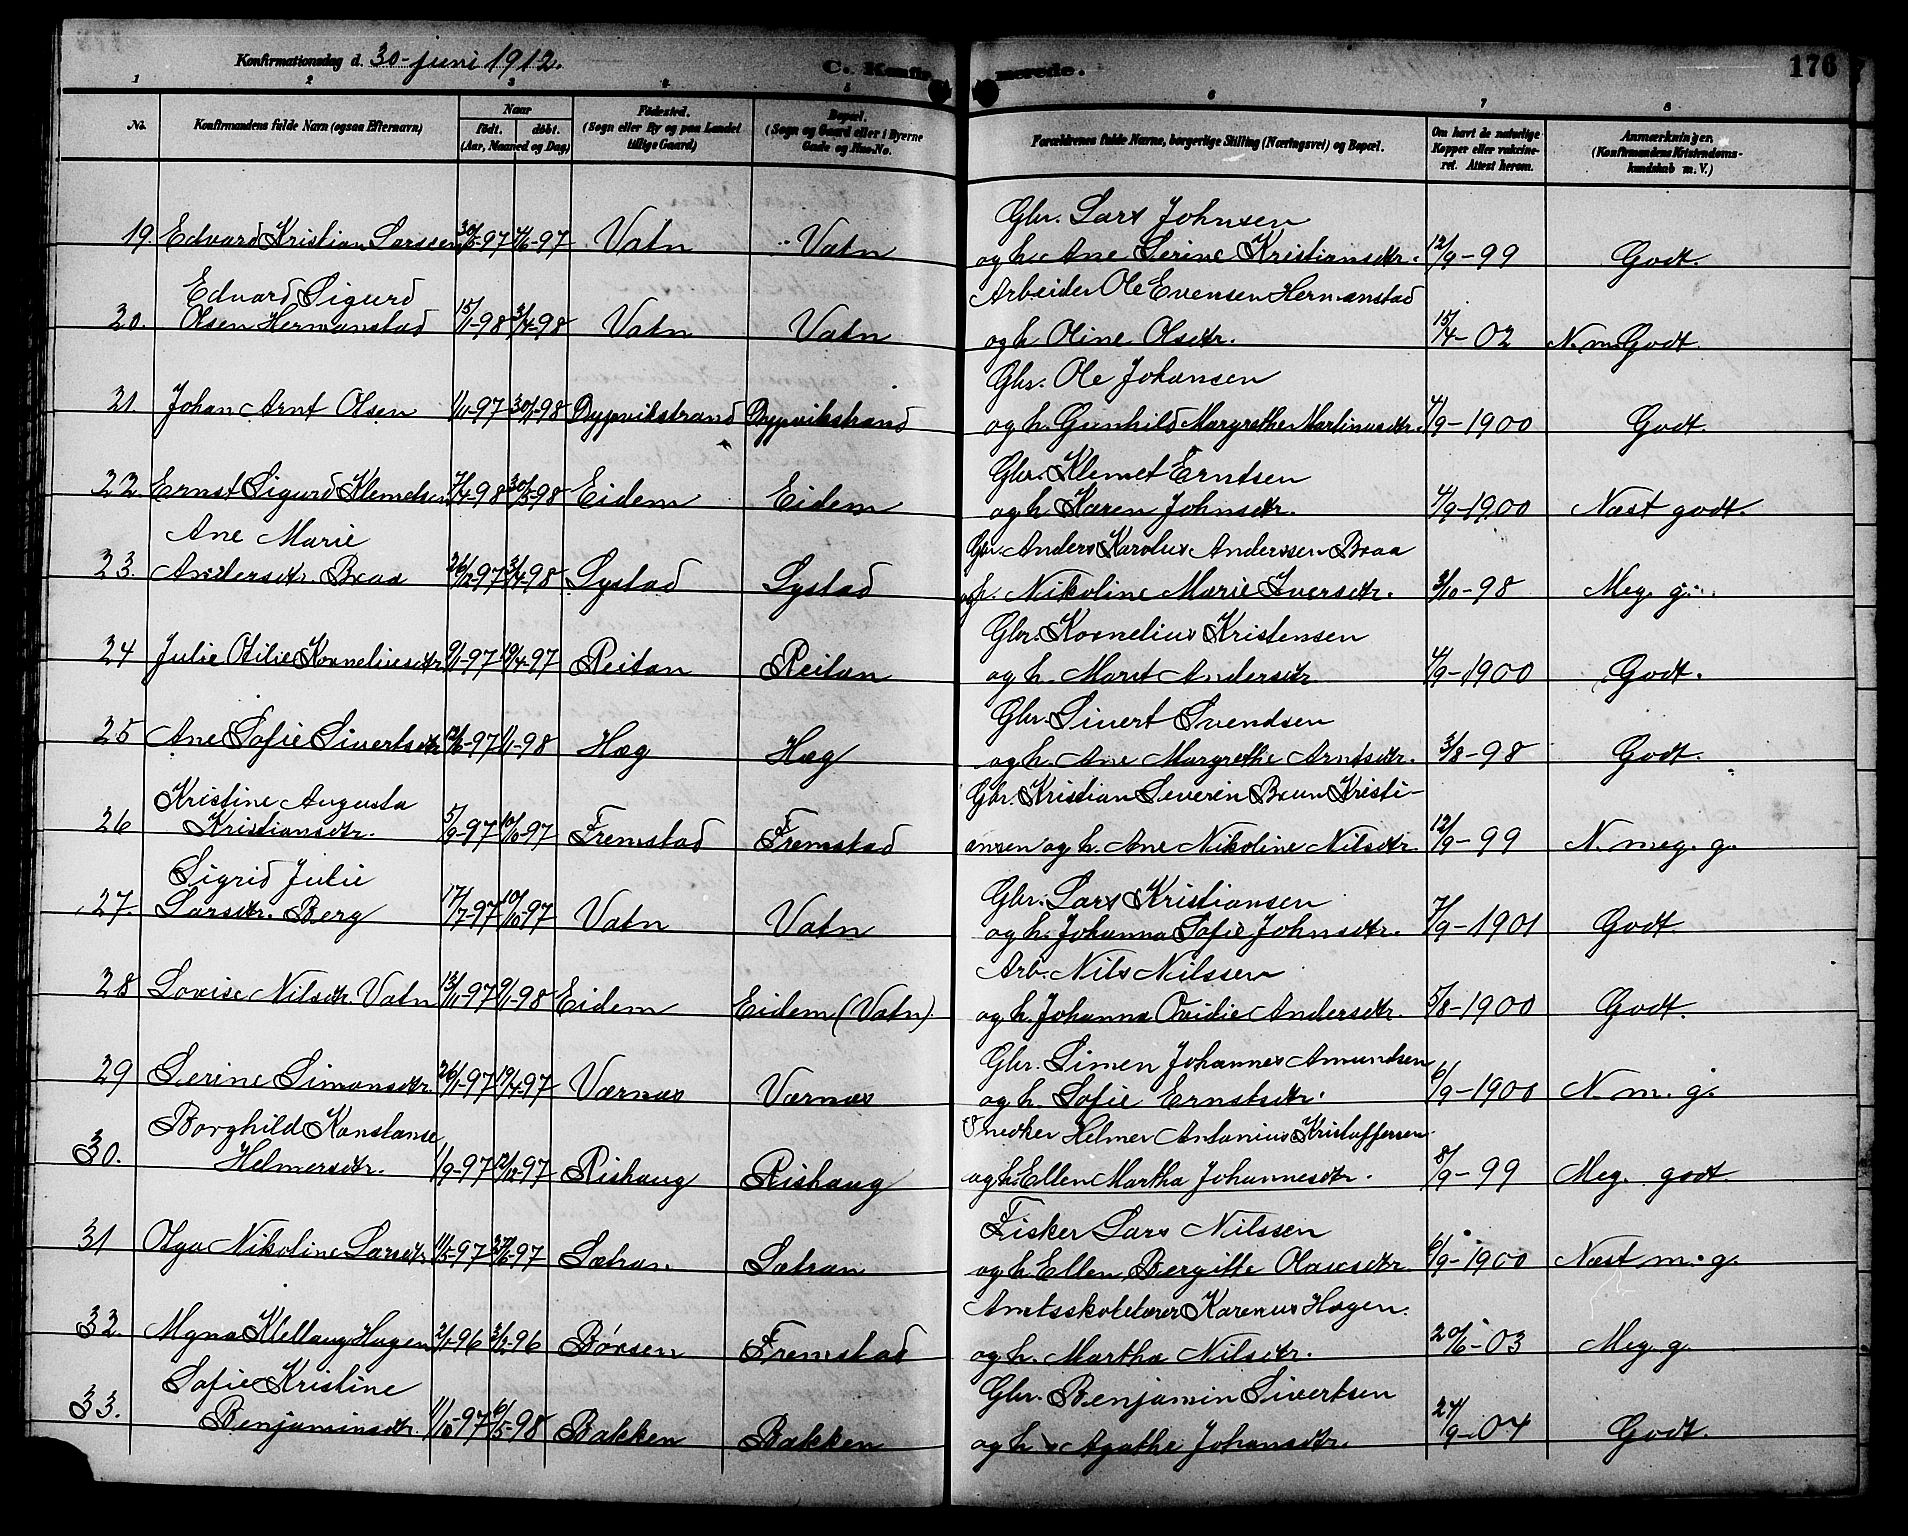 Konfirmationsdag d. 30-juni 1912. C. Konfirmerede. 176
1 2 3 4 5 6 7 8
No. Konfirmandens fulde Navn (ogsaa Efternavn) Naar født. døbt. (Aar, Maaned og Dag) Fødested. (Sogn eller By og paa Landet tillige Gaard) Bopæl. (Sogn og Gaard eller i Byerne Gade og Hus-No. Forældrenes fulde Navne, borgerlige Stilling (Næringsvei) og Bopæl. Om havt de naturlige Kopper eller vakcineret. Attest herom. Anmærkninger. (Konfirmandens Kristendomskundskab m. V.)
Gbr. Lars Johnsen
19. Edvard Kristian Larsen 30/5-97 4/6-97 Vatn Vatn og h. Ane Serine Kristiansdtr. 12/9-99 Godt.
Edvard Sigurd Arbeider Ole Evensen Hermanstad
20. Olsen Hermanstad 15/1-98 3/4-98 Vatn Vatn og h. Oline Olsdtr. 15/4-02 N. m. Godt.
Gbr. Ole Johansen
21 Johan Arnt Olsen 1/11-97 30/1-98 Dypvikstrand Dypvikstrand og h. Gunhild Margrethe Martinusdtr. 4/9-1900 Godt.
Gbr. Klemet Erntsen
22. Ernst Sigurd Klemetsen 7/4-98 30/5-98 Eidem Eidem og h. Karen Johnsdtr. 4/9-1900 Næst godt.
Ane Marie Gbr. Anders Karolus Anderssen Braa
23. Andersdtr. Braa 26/12-97 3/4-98 Lystad Lystad og h. Nikoline Marie Iversdtr. 3/10-98 Meg. g.
Gbr. Kornelius Kristensen
24 Julie Otilie Korneliusdtr. 9/1-97 19/4-97 Reitan Reitan og h. Marit Andersdtr. 4/9-1900 Godt.
Gbr. Sivert Svendsen
25 Ane Sofie Sivertsdtr. 97 1/1-98 Hæg Hæg og h. Ane Margrethe Arntsdtr. 3/8-98 Godt.
Kristine Augusta Gbr. Kristian Severin Brun Kristi-
26 Kristiansdtr. 5/9-97 10/10-97 Fremstad Fremstad ansen og h. Ane Nikoline Nilsdtr. 12/9-99 N. meg. g.
Sigrid Julie Gbr. Lars Kristiansen
27. Larsdtr. Berg 17/7-97 10/10-97 Vatn Vatn og h. Johanna Sofie Johnsdtr. 7/9-1901 Godt.
Arb. Nils Nilssen
28 Lovise Nilsdtr. Vatn 13/11-97 9/1-98 Eidem Eidem (Vatn). og h. Johanna Ovidie Andersdtr. 5/8-1900 Godt.
Gbr. Simen Johannes Amundsen
29 Serine Simonsdtr. 26/1-97 19/4-97 Værnæs Værnæs og h. Sofie Ernstsdtr. 6/9-1900 N. m. g.
Borghild Konstanse Snedker Helmer Antonius Kristoffersen
30. Helmersdtr. 1/9-97 12/12-97 Rishaug Rishaug og h. Ellen Martha Johannesdtr. 8/9-99 Meg. godt.
Fisker Lars Nilssen
31 Olga Nikoline Larsdtr. 11/5-97 27/6-97 Sætran. Sætran og h. Ellen Bergitte Olausdtr. 6/9-1900 Næst m. g.
Amtsskolelærer Karenus Hagen.
32. Mgna Klellaug Hagen 2/1-96 3/12-96 Børsen Fremstad og h. Martha Nilsdtr. 20/6-03 Meg. g.
Sofie Kristine Gbr. Benjamin Sivertsen
33. Benjaminsdtr. 11/10-97 6/5-98 Bakken Bakken og h. Agathe Johansdtr. 24/9-04 Godt.